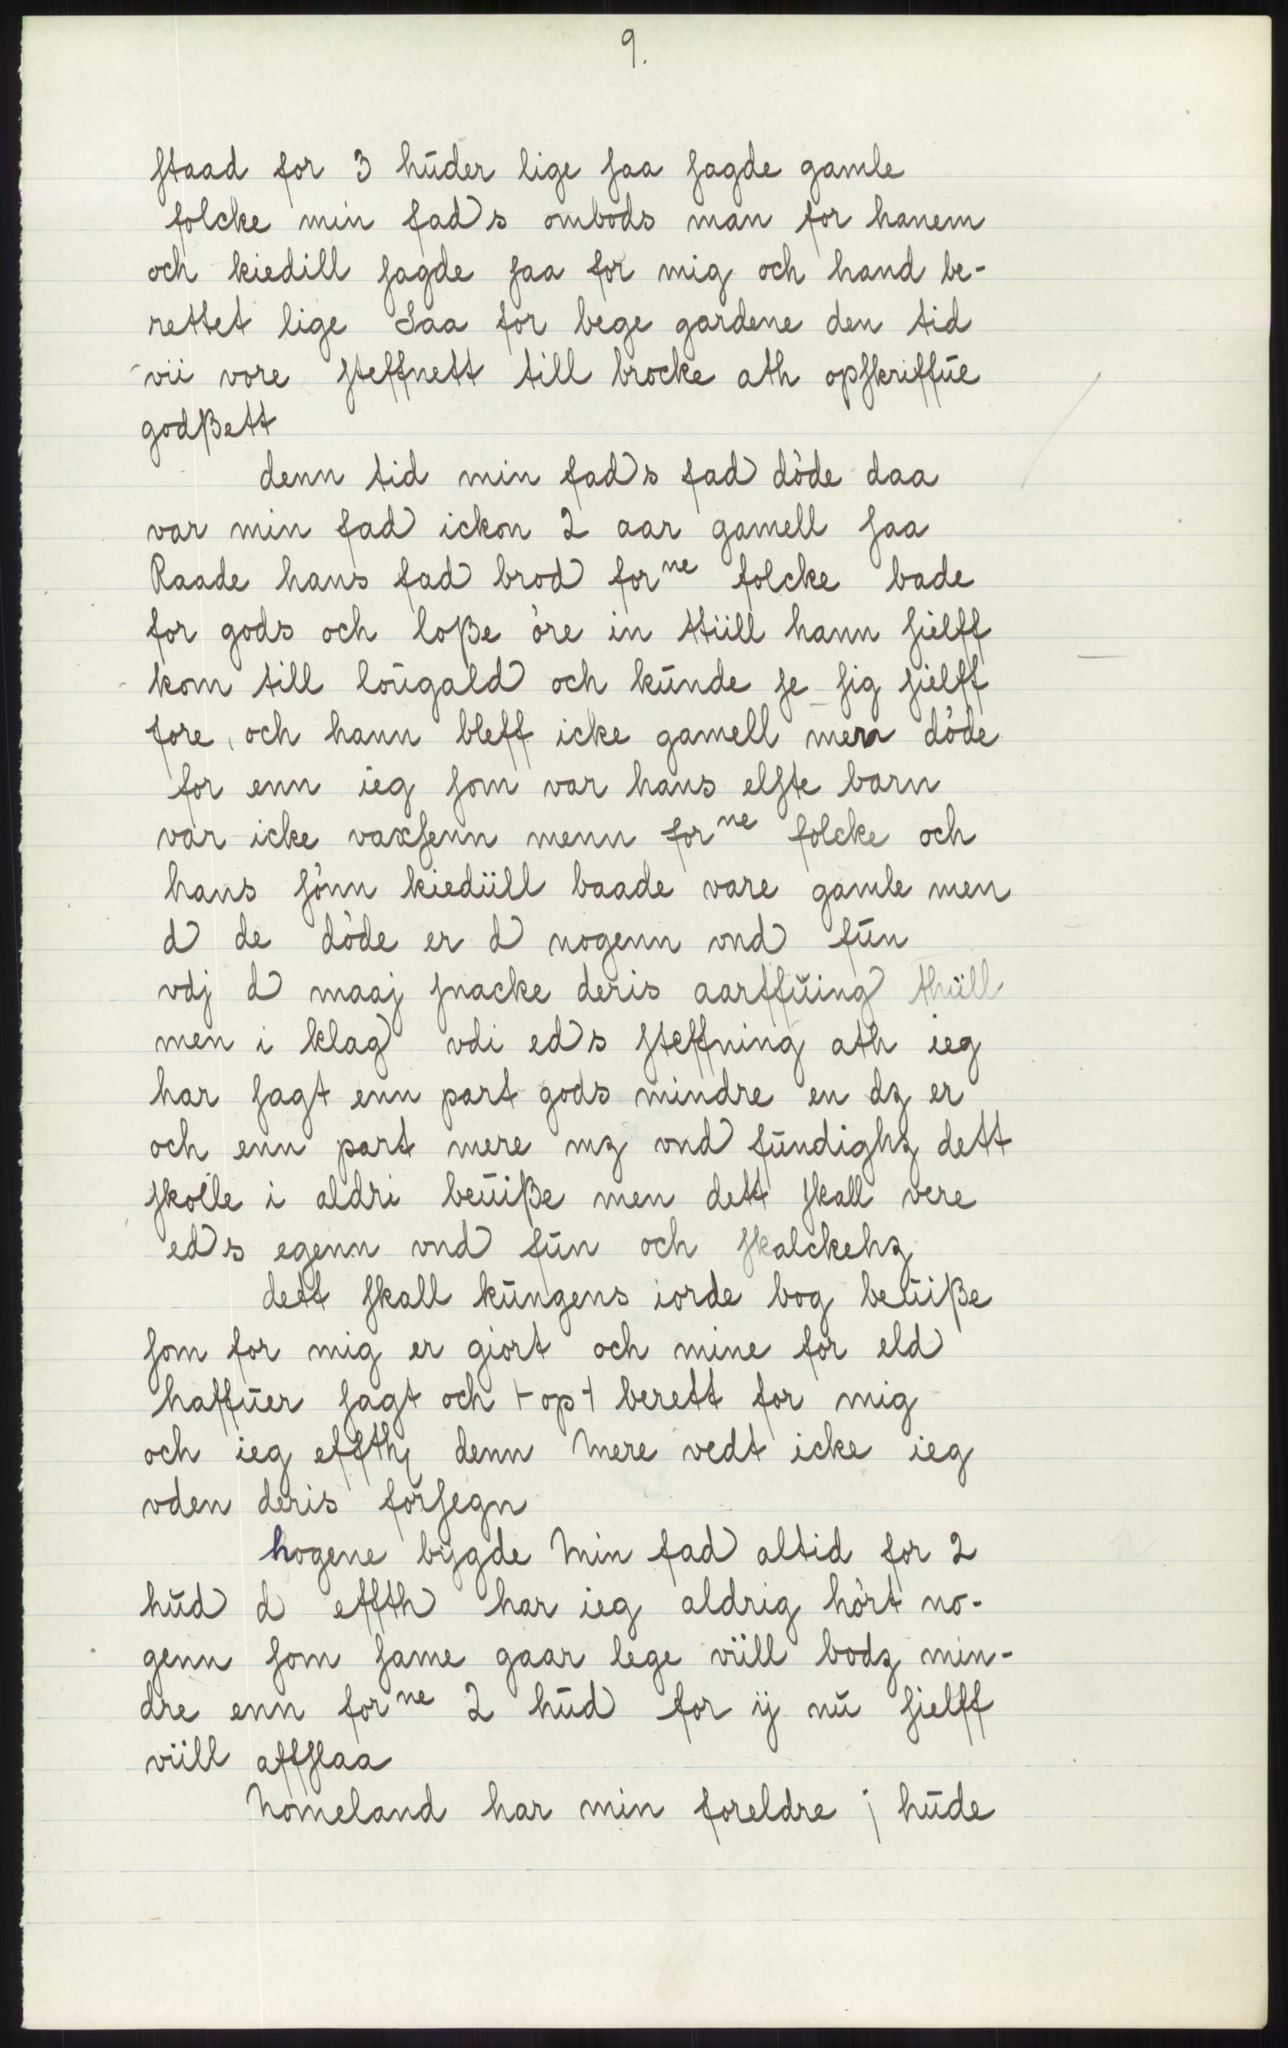 9.
staad for 3 hūder lige saa sagde gamle
folcke min fad s ombods man for hanem
och kiedill sagde saa for mig och hand be-
rettet lige Saa for bege gardene den tid
vii vore steffnett till brocke ath opskriffūe
godßett
denn tid min fad s fad döde daa
var min fad ickon 2 aar gamell saa
Raade hans fad brod forne folcke bade
for gods och loße öre in ttiill hann sielff
kom till loūgald och kūnde se sig sielff
fore, och hann bleff icke gamell men döde
for enn ieg som var hans elste barn
var icke vaxsenn menn forne folcke och
hans sönn kiediill baade vare gamle men
d de döde er d nogenn vnd fūn
vdj d maaj snacke deris aarffūing thiill
men i klag vdi ed s steffning ath ieg
har sagt enn part gods mindre en dz er
och enn part mere mz vnd fūndighz dett
skolle i aldri beūiße men dett skall vere
ed s egenn vnd fūn och skalckehz
dett skall kūngens iorde bog beūiße
som for mig er giort och mine for eld
haffūer sagt och ⊢op⊣ berett for mig
och ieg effth denn Mere vedt icke ieg
vden deris forsegn
hogene bygde Min fad altid for 2
hūd d effth har ieg aldrig hört no-
genn som same gaar lege viill bodz min-
dre enn forne 2 hūd for ij nū sielff
viill affslaa
Nomeland har min foreldre j hūde